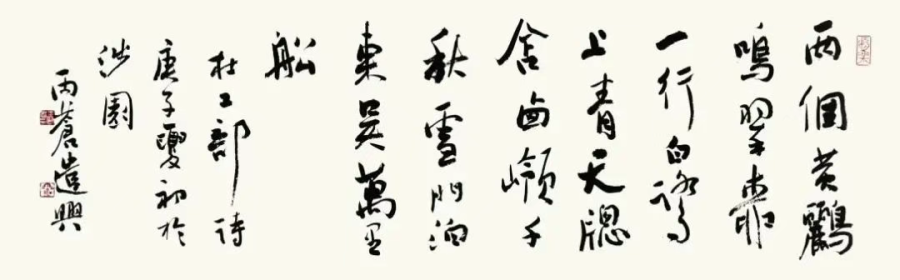 两個黄鸝
鳴翠柳
一行白鷺
上青天窗
含西嶺千
秋雪門泊
東吴萬里
船
杜工部诗
庚子夏初於
涉園
丙蒼遣興